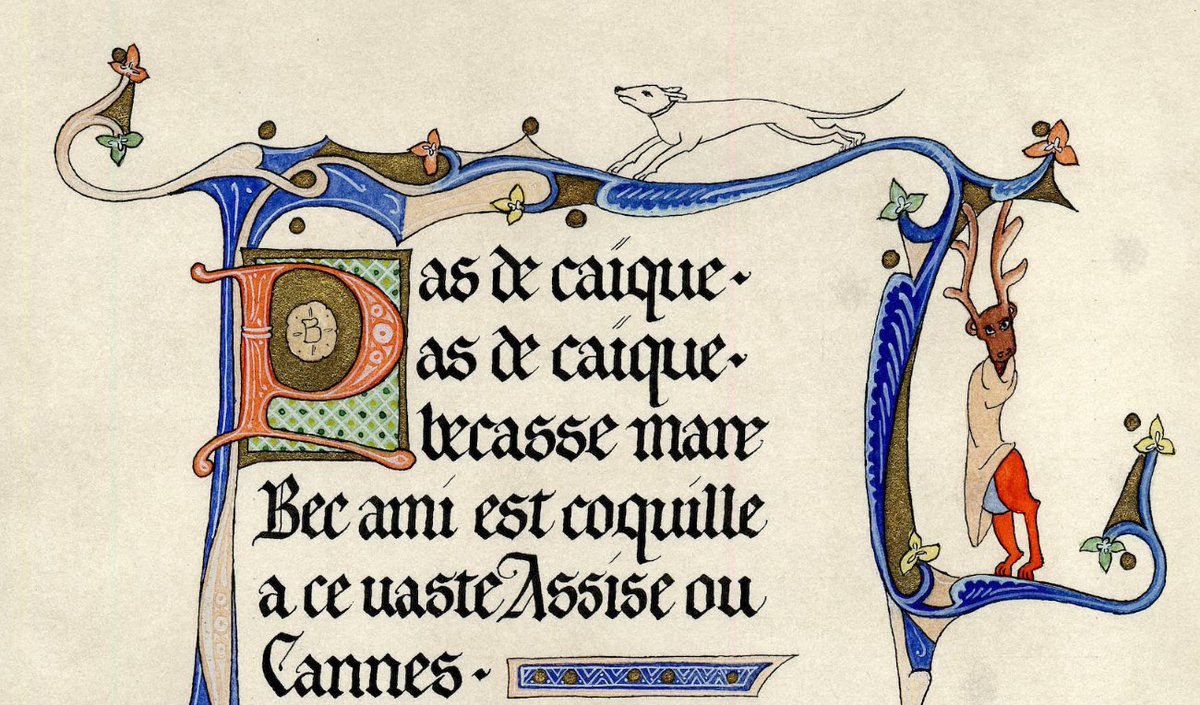 Pas de caïque·
B
as de caïque·
becasse mare
Bec ami est coquille
a ce uaste Assise ou
Cannes·